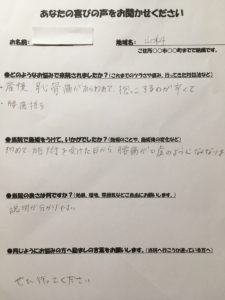 あなたの喜びの声をお聞かせください
お名前:
地域名: 山科
ご住所○○市○○町までで結構です。
●どのようなお悩みで来院されましたか?(これまでのツラさや痛み、行ってきた対処法など)
・産後、恥骨痛がおさまらず、抱っこするのが辛くて
・腰痛持ち
●当院で施術をうけて、いかがでしたか?(施術のことや、施術後の変化など)
初めて施術を受けた日から腰痛がウソのようになくなりました
●当院の良さは何ですか?(地域、環境、雰囲気などご自由にお願いします。)
説明が分かりやすい
●同じようにお悩みの方へ励ましの言葉をお願いします。(当院へ行こうか迷っている方へ)
ぜひ行ってください